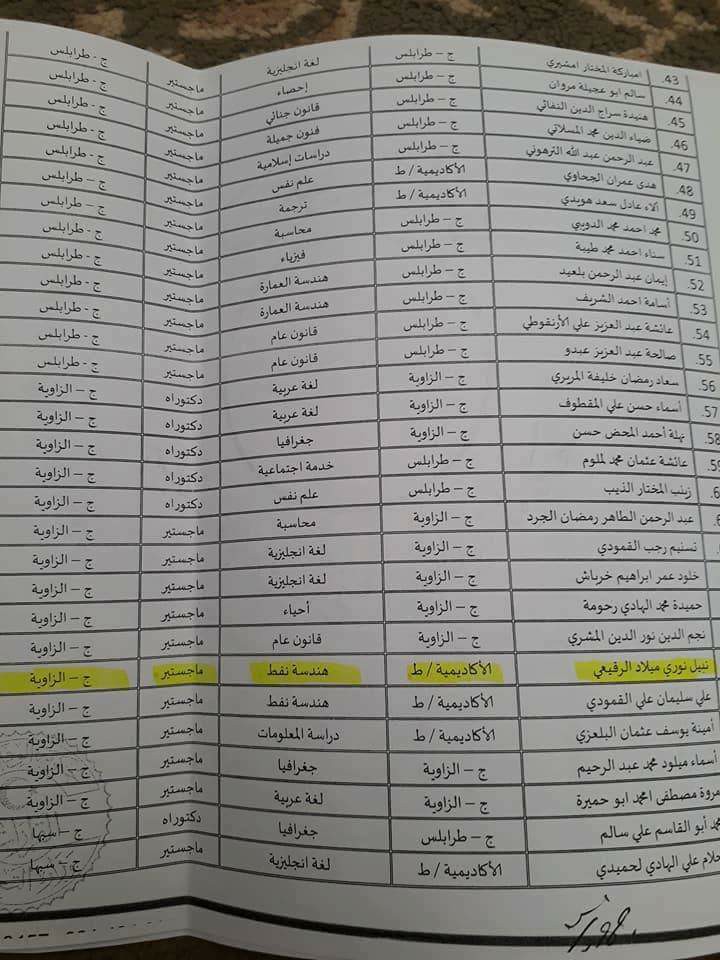 43. امباركة المختار امشيري ج – طرابلس لغة انجليزية ماجستير ج - طرابلس
44. سالم ابو عجيلة مروان ج – طرابلس إحصاء ماجستير ج - طرابلس
45. هنيدة سراج الدين النفاثي ج – طرابلس قانون جنائي ماجستير ج - طرابلس
46. ضياء الدين محمد المسلاتي ج – طرابلس فنون جميلة ماجستير ج - طرابلس
47. عبد الرحمن عبد الله الترهوني ج – طرابلس دراسات إسلامية ماجستير ج - طرابلس
48. هدى عمران الجحاوي الأكاديمية / ط علم نفس ماجستير ج - طرابلس
49. آلاء عادل سعد هويدي الأكاديمية / ط ترجمة ماجستير ج - طرابلس
50. محمد احمد محمد الدويبي ج – طرابلس محاسبة ماجستير ج - طرابلس
51. سناء احمد محمد طيبة ج – طرابلس فيزياء ماجستير ج - طرابلس
52. إيمان عبد الرحمن بلعيد ج – طرابلس هندسة العمارة ماجستير ج - طرابلس
53. أسامة احمد الشريف ج – طرابلس هندسة العمارة ماجستير ج - طرابلس
54. عائشة عبد العزيز علي الأرنقوطي ج – طرابلس قانون عام ماجستير ج - طرابلس
55. صالحة عبد العزيز عبدو ج – طرابلس قانون عام ماجستير ج - طرابلس
56. سعاد رمضان خليفة المريري ج – الزاوية لغة عربية دكتوراه ج – الزاوية
57. أسماء حسن علي المقطوف ج – الزاوية لغة عربية دكتوراه ج – الزاوية
58. نهلة أحمد المحض حسن ج – الزاوية جغرافيا دكتوراه ج – الزاوية
عائشة عثمان محمد لملوم ج – طرابلس خدمة اجتماعية دكتوراه ج – الزاوية
زينب المختار الذيب ج – طرابلس علم نفس دكتوراه ج – الزاوية
عبد الرحمن الطاهر رمضان الجرد ج – الزاوية محاسبة ماجستير ج – الزاوية
تسنيم رجب القمودي ج – الزاوية لغة انجليزية ماجستير ج – الزاوية
خلود عمر ابراهيم خرباش ج – الزاوية لغة انجليزية ماجستير ج – الزاوية
حميدة محمد الهادي رحومة ج – الزاوية أحياء ماجستير ج – الزاوية
نجم الدين نور الدين المشري ج – الزاوية قانون عام ماجستير ج – الزاوية
نبيل نوري ميلاد الرقيعي الأكاديمية / ط هندسة نفط ماجستير ج – الزاوية
علي سليمان علي القمودي الأكاديمية / ط هندسة نفط ماجستير ج – الزاوية
أمينة يوسف عثمان البلعزي الأكاديمية / ط دراسة المعلومات ماجستير ج – الزاوية
أسماء ميلود محمد عبد الرحيم ج – الزاوية جغرافيا ماجستير ج – الزاوية
مروة مصطفى امحمد ابو حميرة ج – الزاوية لغة عربية ماجستير ج – الزاوية
أبو القاسم علي سالم ج – طرابلس جغرافيا دكتوراه ج – سبها
علي الهادي لحميدي الأكاديمية / ط لغة انجليزية ماجستير ج – سبها